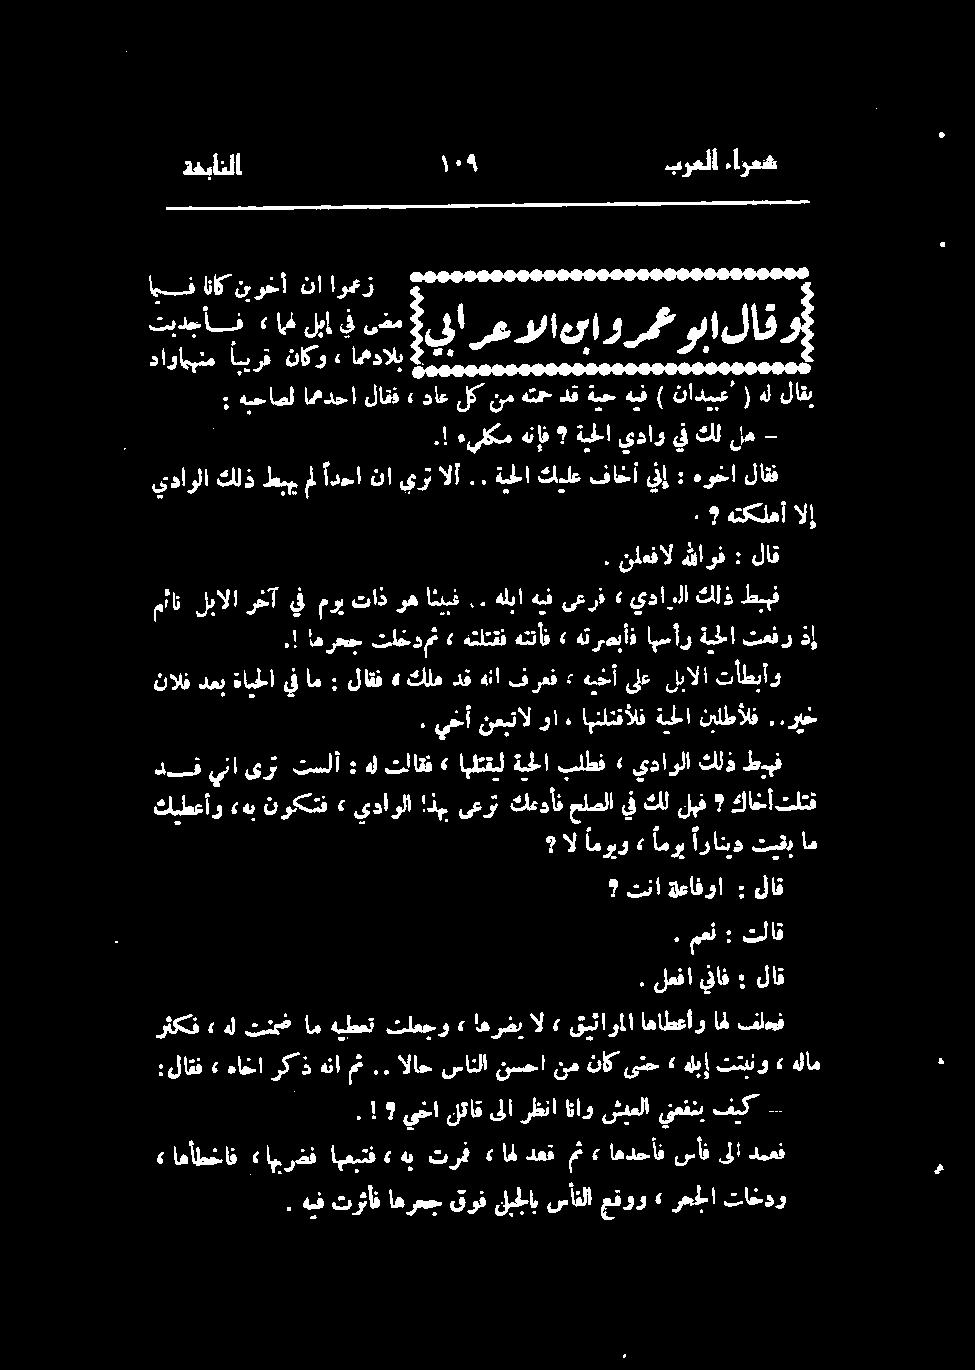 شعراء العرب ١٠٩ النابغة
وقال ابو عمرو ابن الاعرابي
زعموا ان أخوين كانا فـــيما
مضى في إبل لهما ، فـــأجدبت
بلادهما ، وكان قريباً منهما واد
يقال له ( عُبيدان ) فيه حية قد حمته من كل عاد ، فقال احدهما لصاحبه :
– هل لك في وادي الحية ? فإنه مكليء !.
فقال اخوه : إني أخاف عليك الحية .. ألا ترى ان احداً لم يهبط ذلك الوادي
إلا أهلكته ? .
قال : فوالله لافعلن .
فهبط ذلك الوادي ، فرعى فيه ابله .. فبينا هو ذات يوم في آخر الابل نائم
إذ رفعت الحية رأسها فأبصرته ، فأتته فقتلته ، ثم دخلت جحرها !.
وأبطأت الابل على أخيه ، فعرف انه قد هلك ، فقال : ما في الحياة بعد فلان
خير.. فلأطلبن الحية فلأقتلنها ، او لاتبعن أخي .
فهبط ذلك الوادي ، فطلب الحية ليقتلها ، فقالت له : ألست ترى اني قـــد
قتلت أخاك ? فهل لك في الصلح فأدعك ترعى بهذا الوادي ، فتكون به، وأعطيك
ما بقيت ديناراً يوماً ، ويوماً لا ?
قال : اوفاعلة انت ?
قالت : نعم .
قال : فاني افعل .
فحلف لها وأعطاها المواثيق ، لا يضرها ، وجعلت تعطيه ما ضمنت له ، فكثر
ماله ، ونبتت إبله ، حتى كان من احسن الناس حالا .. ثم انه ذكر اخاه ، فقال:
– كيف ينفعني العيش وانا انظر الى قاتل اخي ? ! .
فعمد الى فأس فأحدها ، ثم قعد لها ، فمرت به ، فتبعها فضربها ، فاخطأها ،
ودخلت الجحر ، ووقع الفأس بالجبل فوق جحرها فأثرت فيه .